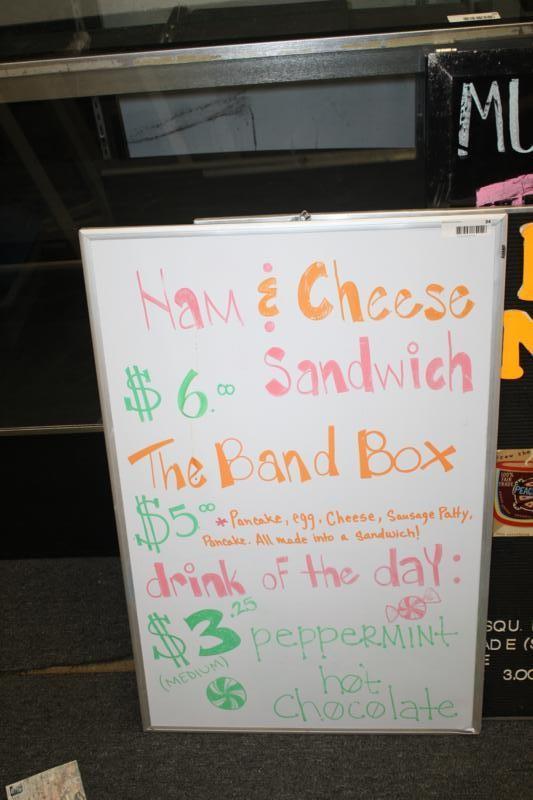 MU
Ham & Cheese
Sandwich
$6.00
The Band Box
$5.00 *Pancake, egg, Cheese, Sausage Patty,
Pancake. All made into a Sandwich!
drink of the day:
$3.25 pepperMint
(MEDIUM) hot
Chocolate
100%
FAIR
TRADE
PEAC
SQU.
ADE (S
E
3.00